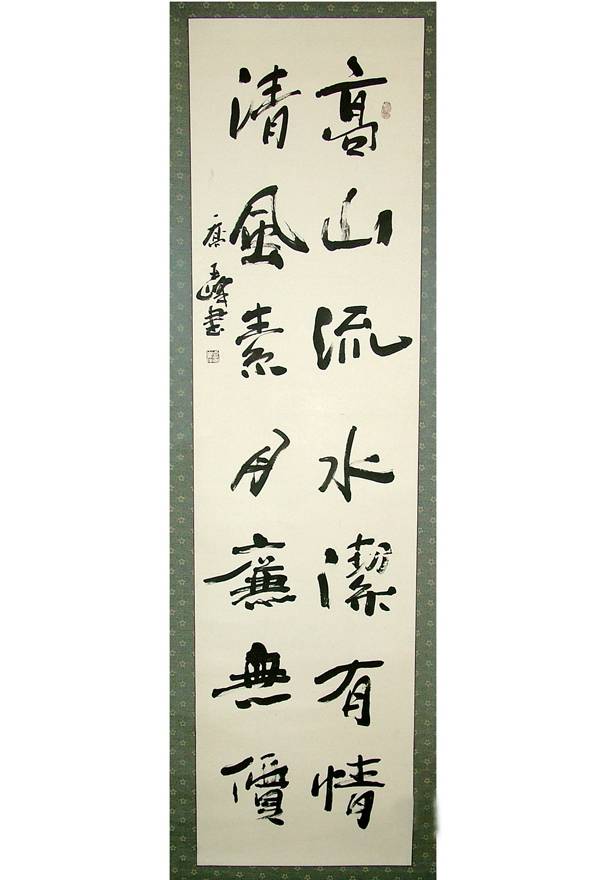 高山流水潔有情
清風素月廉無價
玉峰書